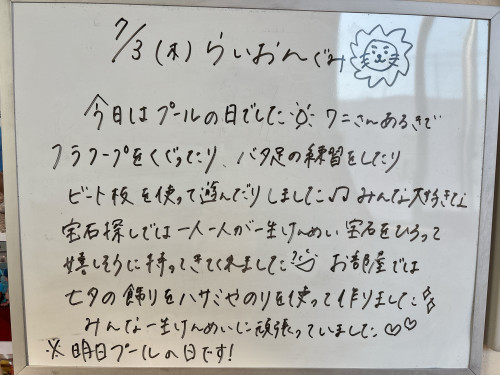 7/3(木) らいおんぐみ
今日はプールの日でした ワニさんあるきで
フラフープをくぐったり、バタ足の練習をしたり
ビート板を使って遊んだりしました♫ みんな大好きな
宝石探しでは一人一人が一生けんめい宝石をひろって
嬉しそうに持ってきてくれました お部屋では
七夕の飾りをハサミやのりを使って作りました
みんな一生けんめいに頑張っていました♡♡
※明日プールの日です!